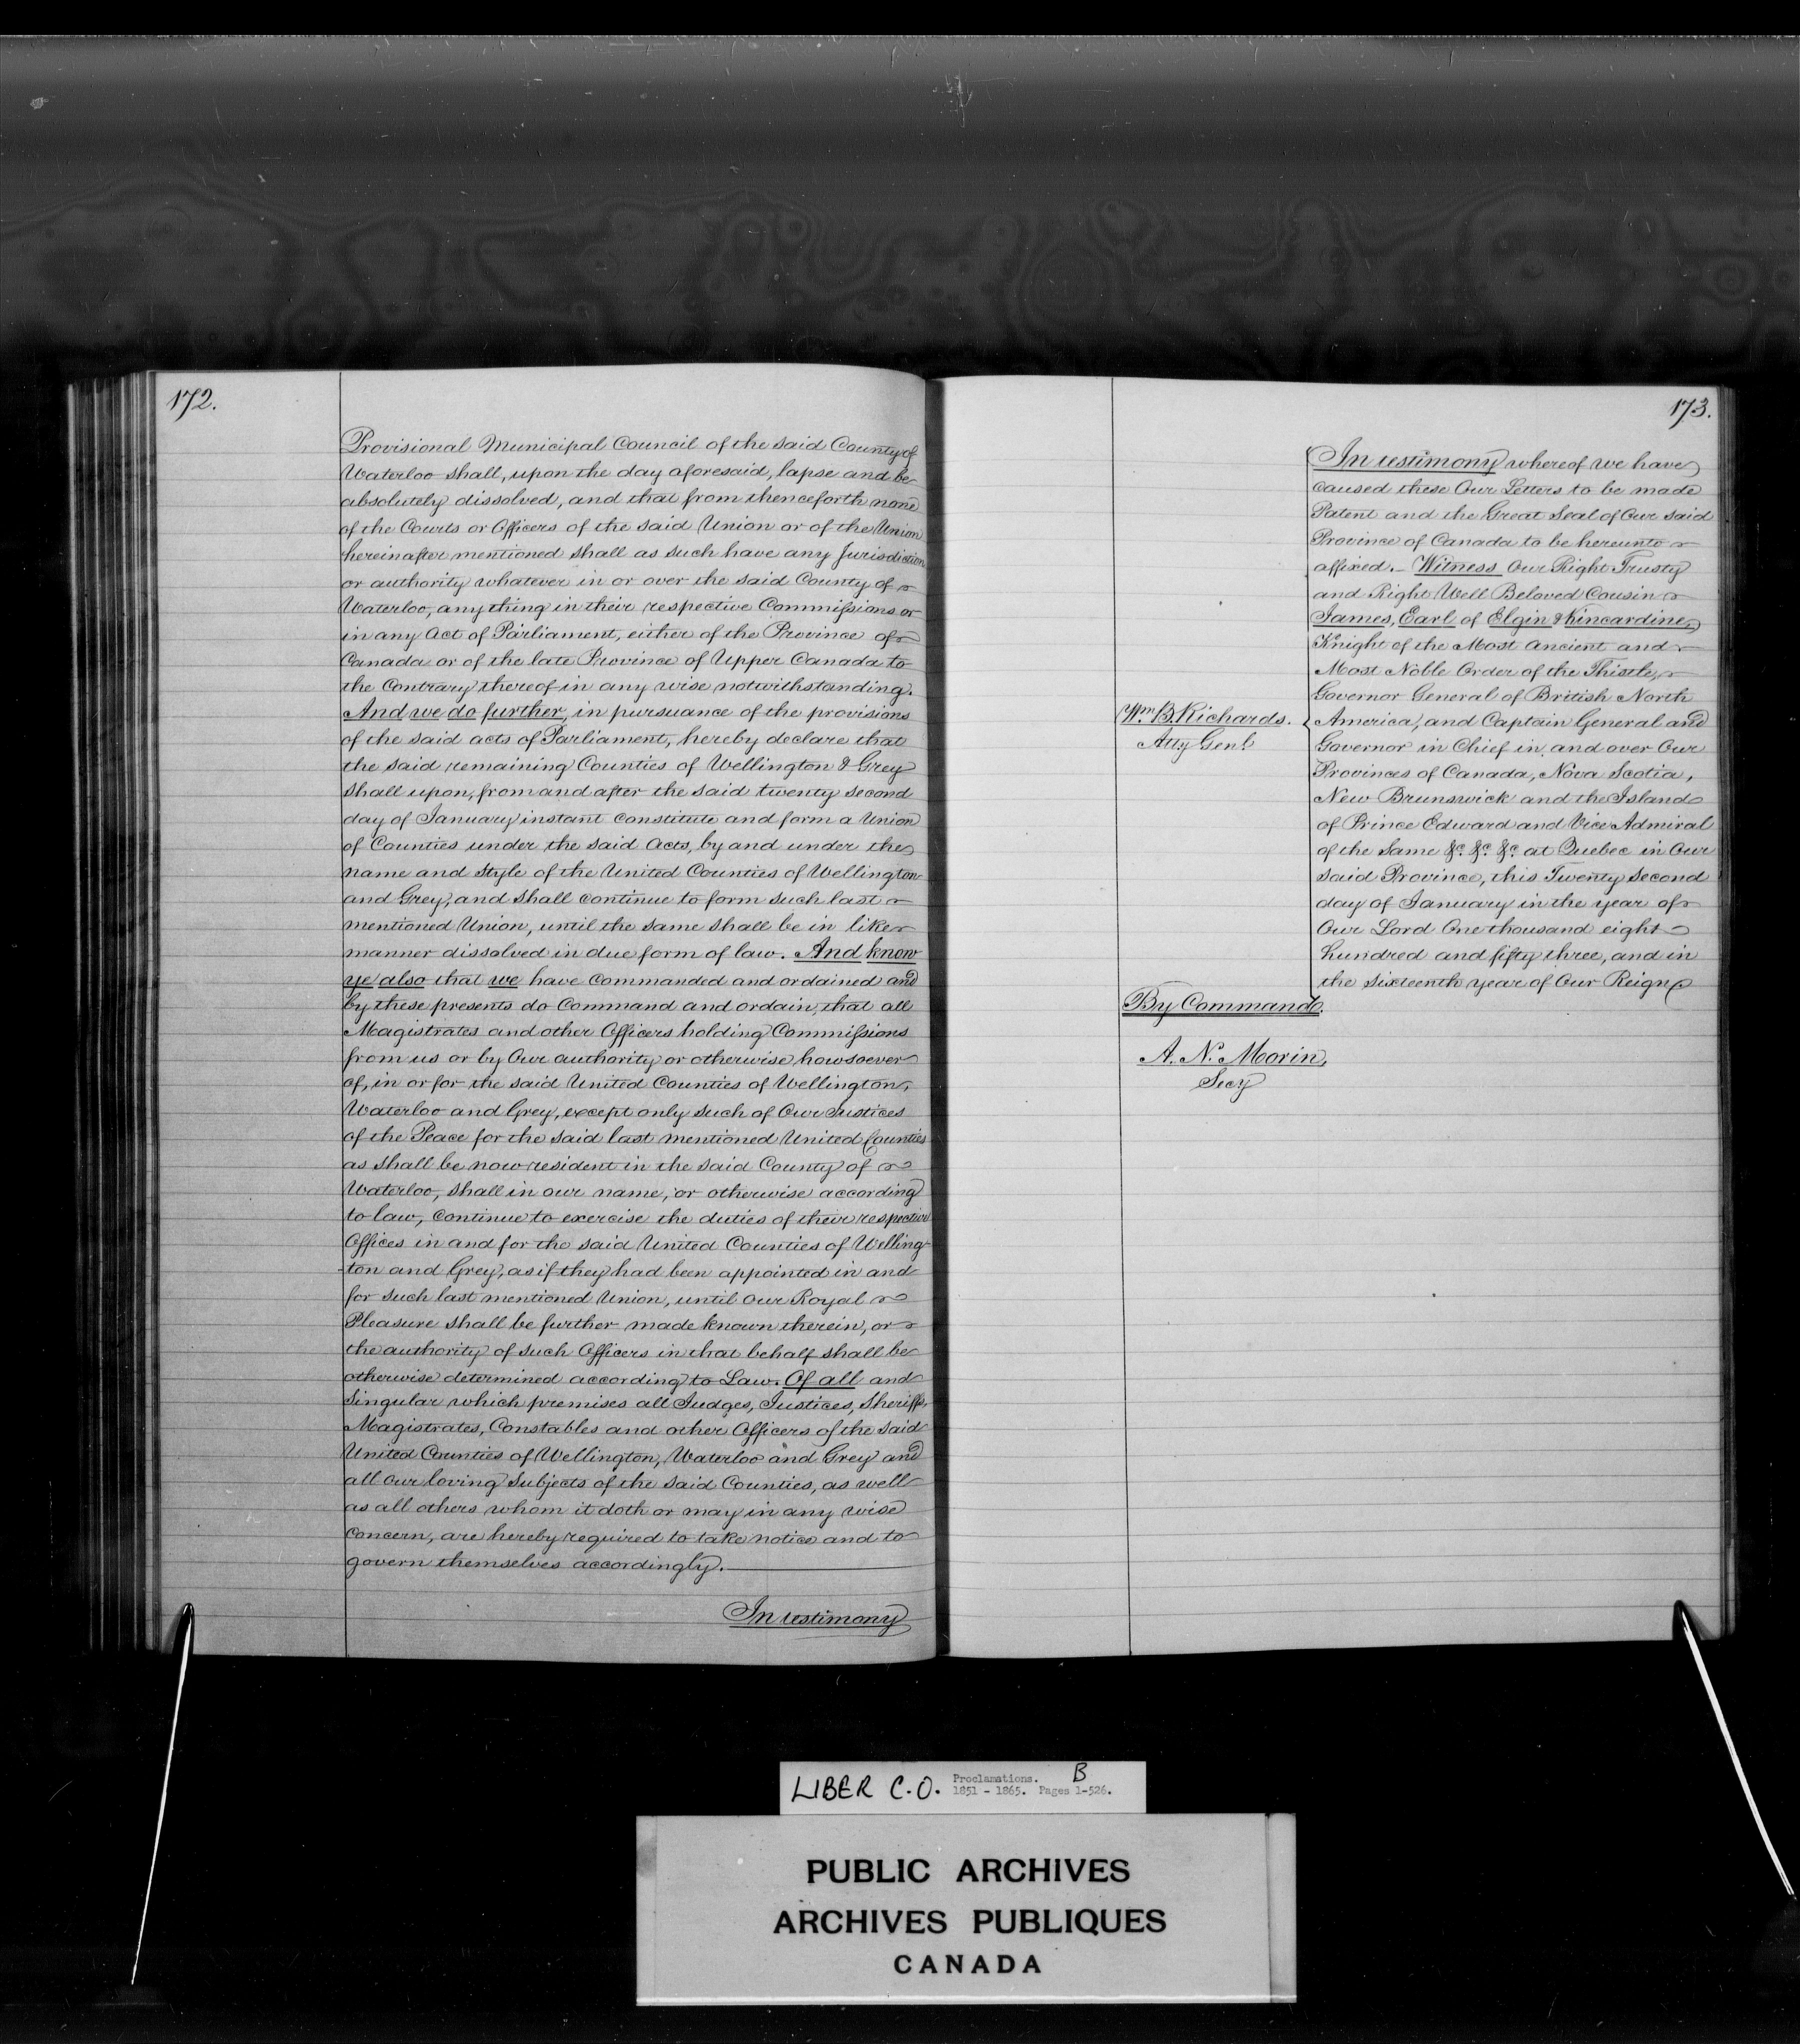 172.
Provisional Municipal Council of the said County of
Waterloo shall, upon the day aforesaid, lapse and be
absolutely dissolved, and that from thenceforth none
of the Courts or Officers of the said Union or of the Union
hereinafter mentioned shall as such have any Jurisdiction
or authority whatever in or over the said County of
Waterloo, any thing in their respective Commissions or
in any Act of Parliament, either of the Province of
Canada or of the late Province of Upper Canada to
the Contrary thereof in any wise notwithstanding.
And we do further, in pursuance of the provisions
of the said acts of Parliament, hereby declare that
the said remaining Counties of Wellington & Grey
shall upon, from and after the said twenty second
day of January instant constitute and form a Union
of Counties under the said Acts, by and under the
name and style of the United Counties of Wellington
and Grey, and shall continue to form such last
mentioned Union, until the same shall be in like
manner dissolved in due form of law. And know
ye also that we have commanded and ordained and
by these presents do Command and ordain, that all
Magistrates and other Officers holding Commissions
from us or by Our authority or otherwise howsoever
of, in or for the said United Counties of Wellington,
Waterloo and Grey, except only such of Our Justices
of the Peace for the said last mentioned United Counties
as shall be now resident in the said County of
Waterloo, shall in our name, or otherwise according
to law, continue to exercise the duties of their respective
Offices in and for the said United Counties of Welling-
-ton and Grey, as if they had been appointed in and
for such last mentioned Union, until Our Royal
Pleasure shall be further made known therein, or
the authority of such Officers in that behalf shall be
otherwise determined according to Law. Of all and
Singular which premises all Judges, Justices, Sheriffs,
Magistrates, Constables and other Officers of the said
United Counties of Wellington, Waterloo and Grey and
all Our loving Subjects of the said Counties, as well
as all others whom it doth or may in any wise
concern, are hereby required to take notice and to
govern themselves accordingly.
In testimony
173.
In testimony whereof we have
caused these Our Letters to be made
Patent and the Great Seal of Our said
Province of Canada to be hereunto
affixed. Witness Our Right Trusty
and Right Well Beloved Cousin
James, Earl of Elgin & Kincardine,
Knight of the Most Ancient and
Most Noble Order of the Thistle,
Governor General of British North
America, and Captain General and
Governor in Chief in and over Our
Provinces of Canada, Nova Scotia,
New Brunswick and the Island
of Prince Edward and Vice Admiral
of the Same &c. &c. &c. at Quebec in Our
said Province, this Twenty second
day of January in the year of
Our Lord One thousand eight
hundred and fifty three, and in
the sixteenth year of Our Reign
Wm. B. Richards.
Atty Genl.
By Command.
A. N. Morin,
Secy
LIBER C.O. Proclamations. B
1851 - 1865. Pages 1-526.
PUBLIC ARCHIVES
ARCHIVES PUBLIQUES
CANADA